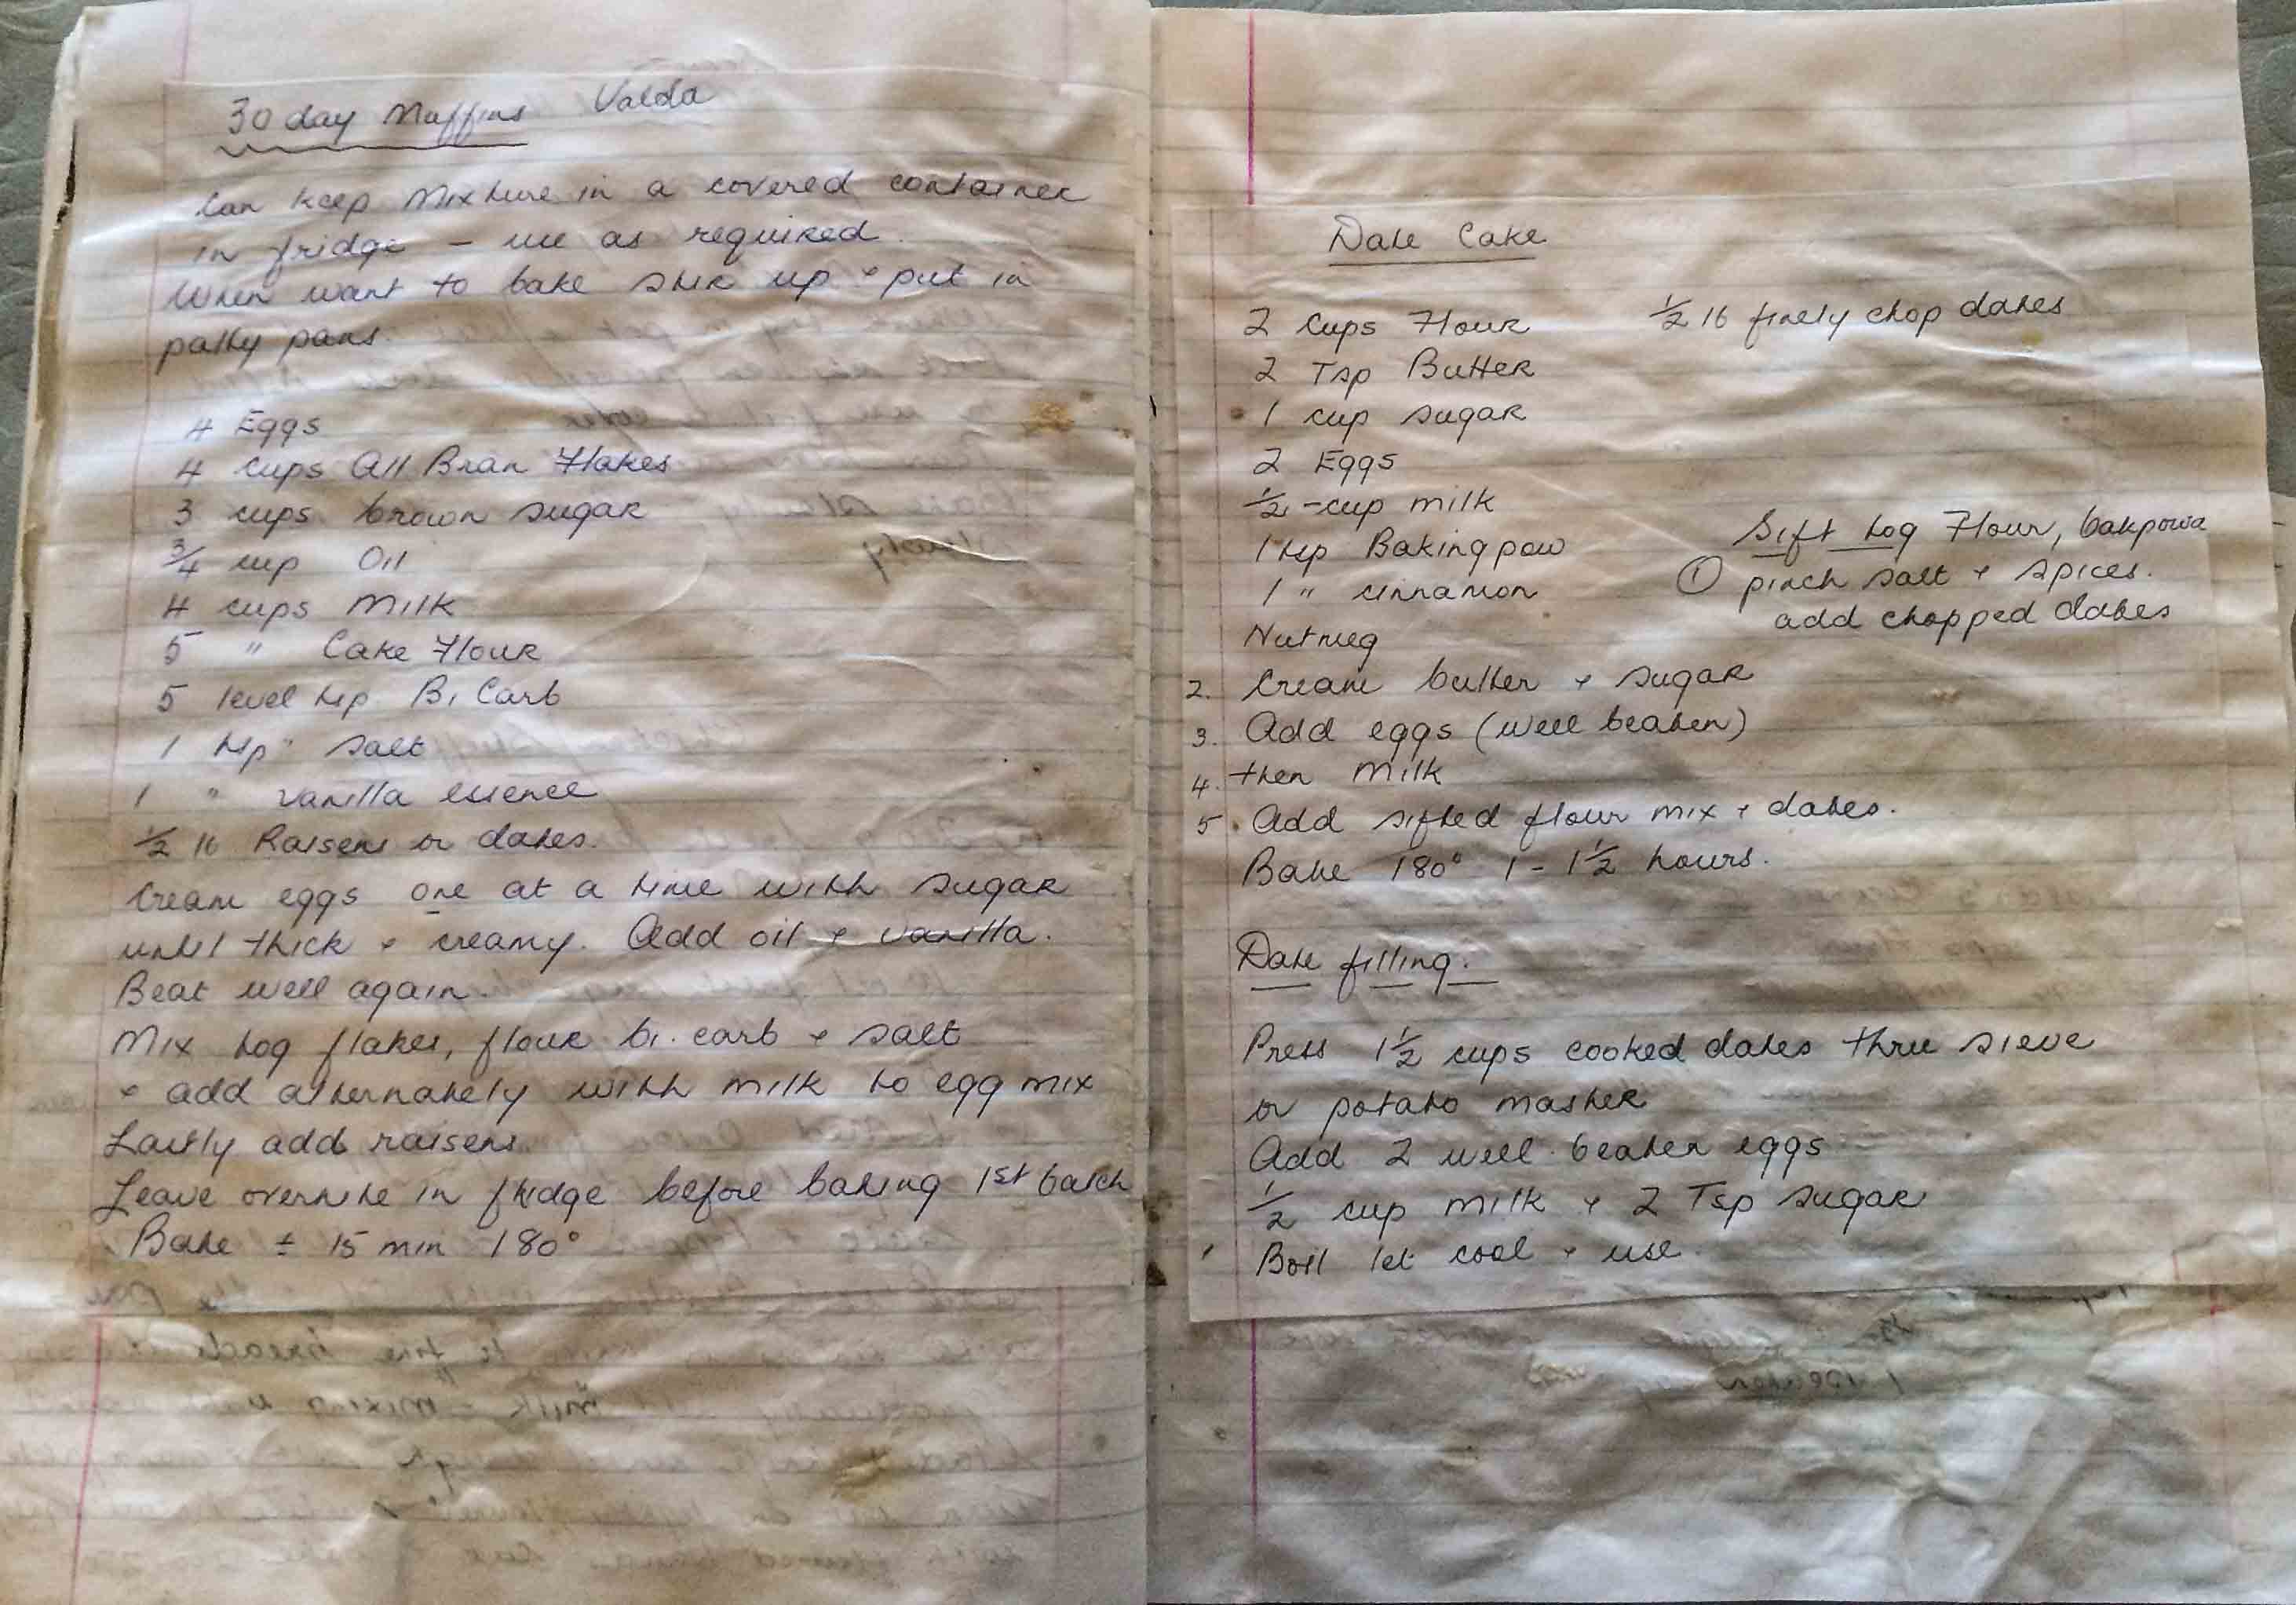 30 day Muffins Valda
Can keep Mixture in a covered container
in fridge - use as required.
When want to bake stir up + put in
patty pans.
4 Eggs
4 cups All Bran Flakes
3 cups brown sugar
3/4 cup Oil
4 cups Milk
5 " Cake Flour
5 level tsp Bi Carb
1 tsp salt
1 " vanilla essence
1/2 lb Raisens or dates.
Cream eggs one at a time with sugar
until thick + creamy. Add oil + vanilla.
Beat well again.
Mix tog flakes, flour bi. carb + salt
+ add alternately with milk to egg mix
Lastly add raisens.
Leave overnite in fridge before baking 1st batch
Bake ± 15 min 180°
Date Cake
2 Cups Flour 1/2 lb finely chop dates
2 Tsp Butter
1 cup sugar
2 Eggs
1/2 - cup milk
1 tsp Baking pow
1 " cinnamon
Nutmeg
Sift tog Flour, bakpowa
① pinch salt + spices.
add chopped dates
2. Cream butter + sugar
3. Add eggs (well beaten)
4. then Milk
5. Add sifted flour mix + dates.
Bake 180° 1 - 1 1/2 hours.
Date filling.
Press 1 1/2 cups cooked dates thru sieve
or potato masher
Add 2 well beaten eggs
1/2 cup milk + 2 Tsp sugar
Boil let cool + use.